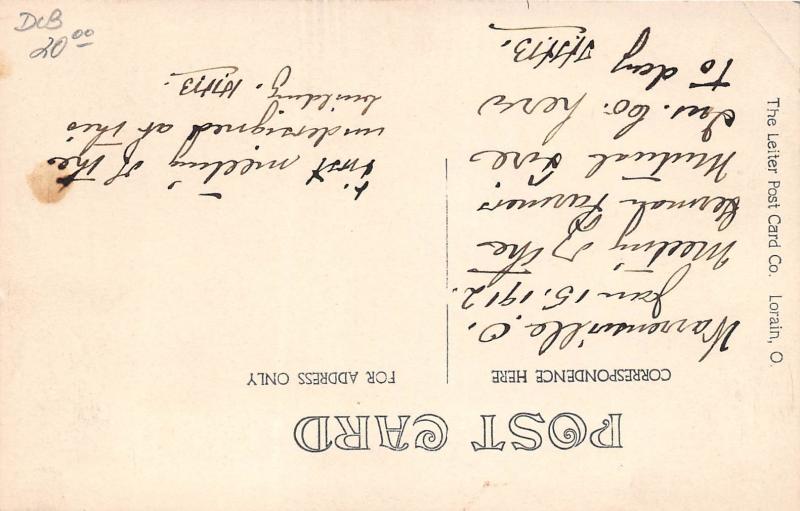 POST CARD
CORRESPONDENCE HERE
FOR ADDRESS ONLY
Warrensville. O.
Jan 15. 1912.
Meeting of the
German Farmers
Mutual Fire
Ins. Co. here
To day
First meeting of the
undersigned at this
building.
The Leiter Post Card Co. Lorain, O.
DcB
20 00